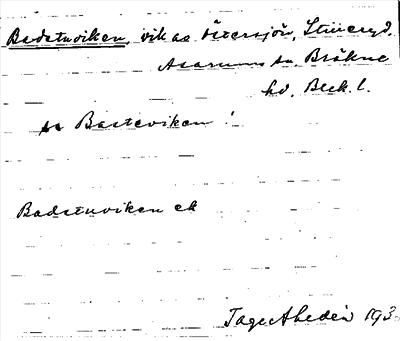 Badstuviken, vik av Östersjön, Stilleryd,
Asarums sn. Bräkne
hd. Blek. l.
sv Basteviken!
Badstuviken ek
Tage Ahldén 193